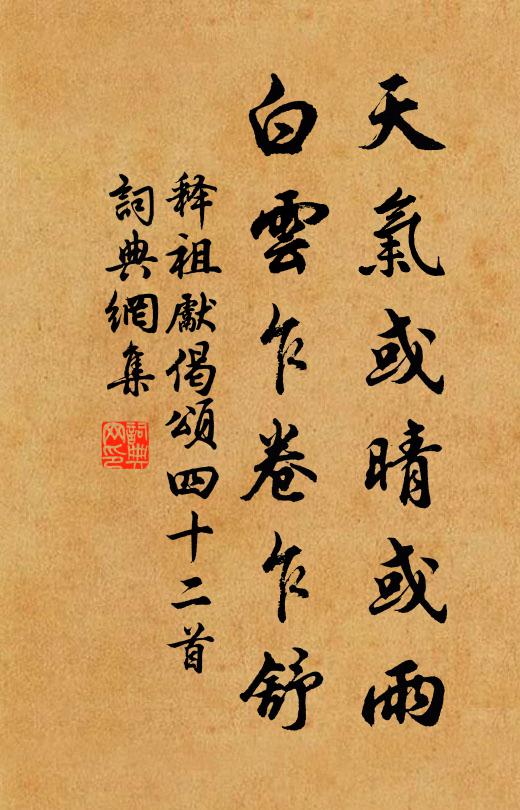 天氣或晴或雨
白雲乍卷乍舒
释祖獻偈頌四十二首
詞典網集
詞典网印